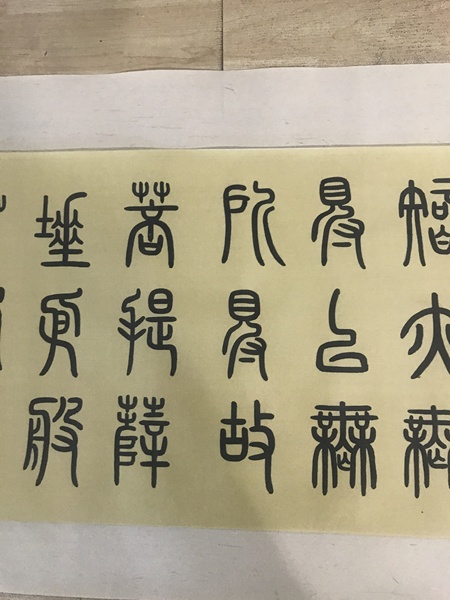 智亦無
得以無
所得故
菩提薩
埵依般